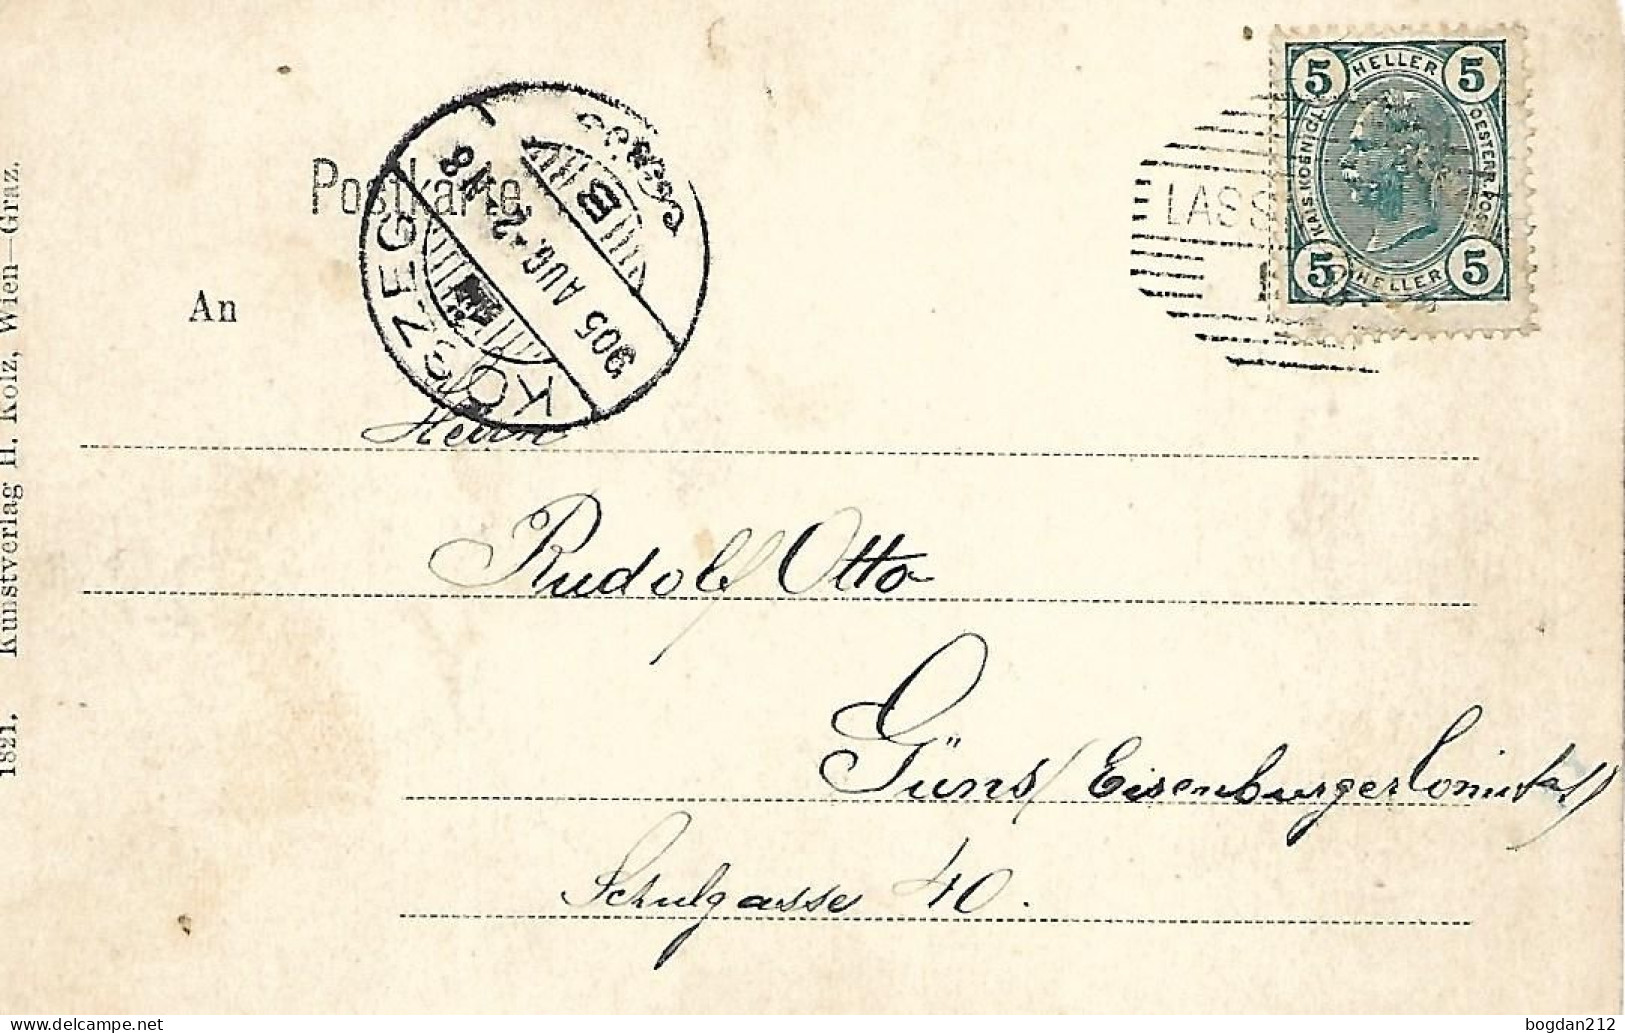 Postkarte.
An
KŐSZEG
905 AUG. 2
B
LASS
5 HELLER 5
KAIS. KOENIGL. OESTERR. POST
5 HELLER 5
Herrn
Rudolf Otto
Güns (Eisenburger Comitat)
Schulgasse 40.
1821. Kunstverlag H. Kölz, Wien—Graz.
bogdan212